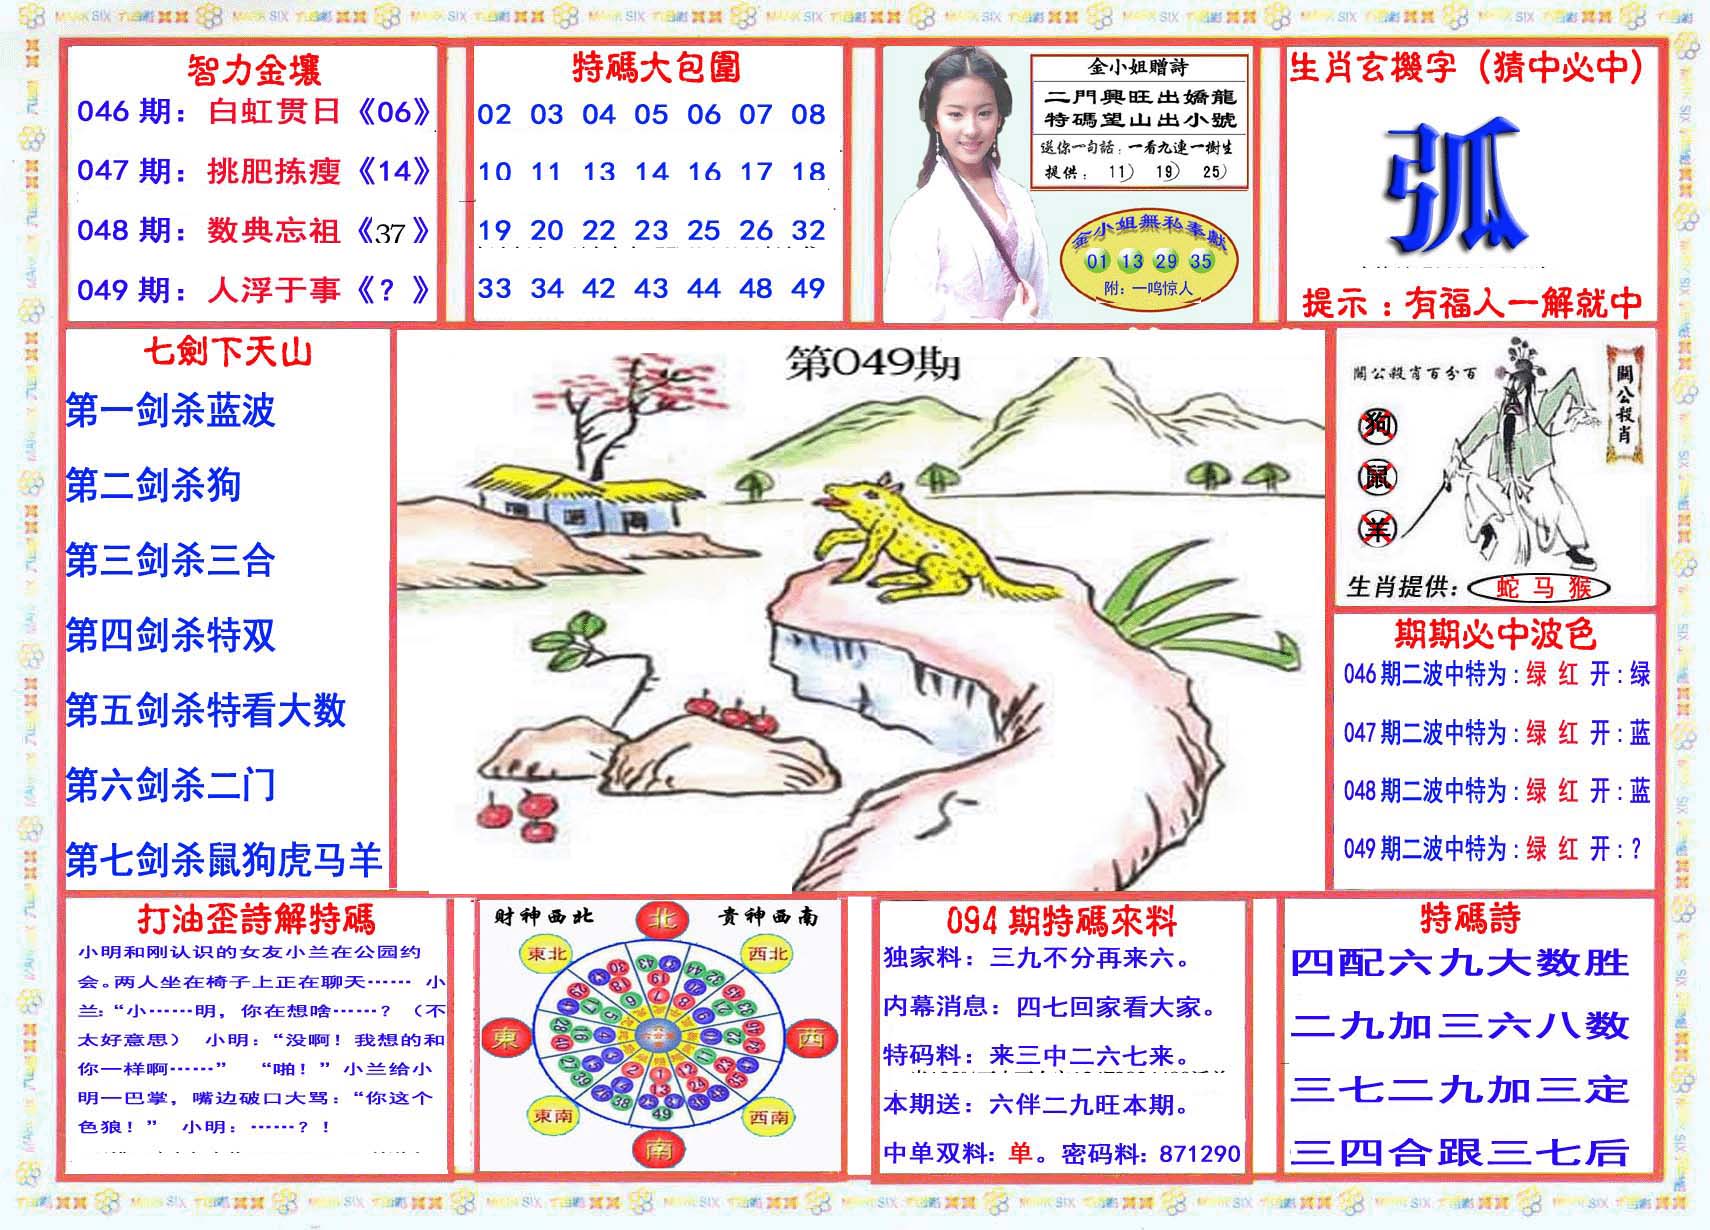 智力金壤
046 期：白虹贯日《06》
047 期：挑肥拣瘦《14》
048 期：数典忘祖《37》
049 期：人浮于事《？》
特碼大包圍
02 03 04 05 06 07 08
10 11 13 14 16 17 18
19 20 22 23 25 26 32
33 34 42 43 44 48 49
金小姐贈詩
二門興旺出嬌龍
特碼望山出小號
送你一句話：一看九連一樹生
提供： 11） 19） 25）
金小姐無私奉獻
01 13 29 35
附：一鸣惊人
生肖玄機字（猜中必中）
弧
提示：有福人一解就中
七劍下天山
第一剑杀蓝波
第二剑杀狗
第三剑杀三合
第四剑杀特双
第五剑杀特看大数
第六剑杀二门
第七剑杀鼠狗虎马羊
第049期
關公殺肖百分百
關公殺肖
狗
鼠
羊
生肖提供：蛇 马 猴
期期必中波色
046期二波中特为：绿 红 开：绿
047期二波中特为：绿 红 开：蓝
048期二波中特为：绿 红 开：蓝
049期二波中特为：绿 红 开：？
打油歪詩解特碼
小明和刚认识的女友小兰在公园约
会。两人坐在椅子上正在聊天…… 小
兰：“小……明，你在想啥……？（不
太好意思） 小明：“没啊！我想的和
你一样啊……” “啪！”小兰给小
明一巴掌，嘴边破口大骂：“你这个
色狼！” 小明：……？！
財神西北
貴神西南
北
東北
西北
東
西
東南
西南
南
094 期特碼來料
独家料：三九不分再来六。
内幕消息：四七回家看大家。
特码料：来三中二六七来。
本期送：六伴二九旺本期。
中单双料：单。密码料：871290
特碼詩
四配六九大数胜
二九加三六八数
三七二九加三定
三四合跟三七后